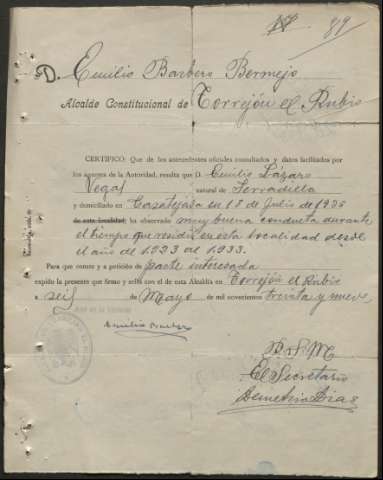 89
D. Emilio Barbero Bermejo
Alcalde Constitucional de Torrejón el Rubio
CERTIFICO: Que de los antecedentes oficiales consultados y datos facilitados por
los agentes de la Autoridad, resulta que D. Emilio Lázaro
Vegas natural de Serradilla
y domiciliado en Casatejada en 18 de Julio de 1936
de esta localidad, ha observado muy buena conducta durante
el tiempo que residió en esta localidad desde
el año de 1.923 al 1.933.
Para que conste y a petición de parte interesada
expido la presente que firmo y sello con el de esta Alcaldía en Torrejón el Rubio
a seis de Mayo de mil novecientos treinta y nueve
Emilio Barbero
P. S. M.
El Secretario
Demetrio Díaz